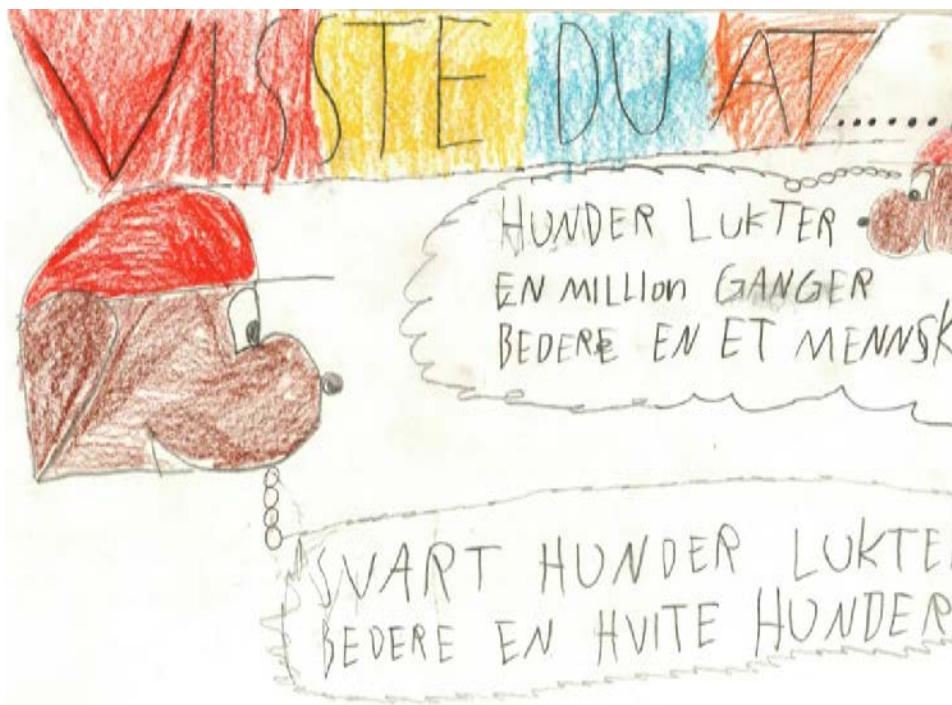 VISSTE DU AT.......
HUNDER LUKTER
EN MILLION GANGER
BEDERE EN ET MENNSK
SVART HUNDER LUKTE
BEDERE EN HVITE HUNDER